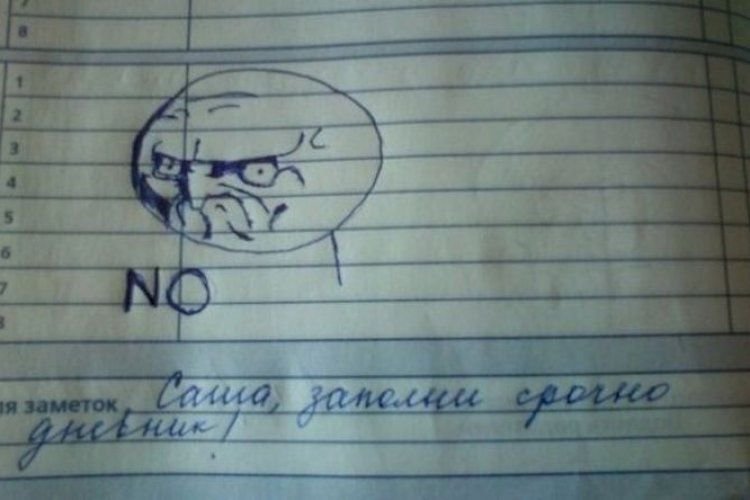 7
8
1
2
3
4
5
6
7
8
NO
ля заметок Саша, заполни срочно
дневник!